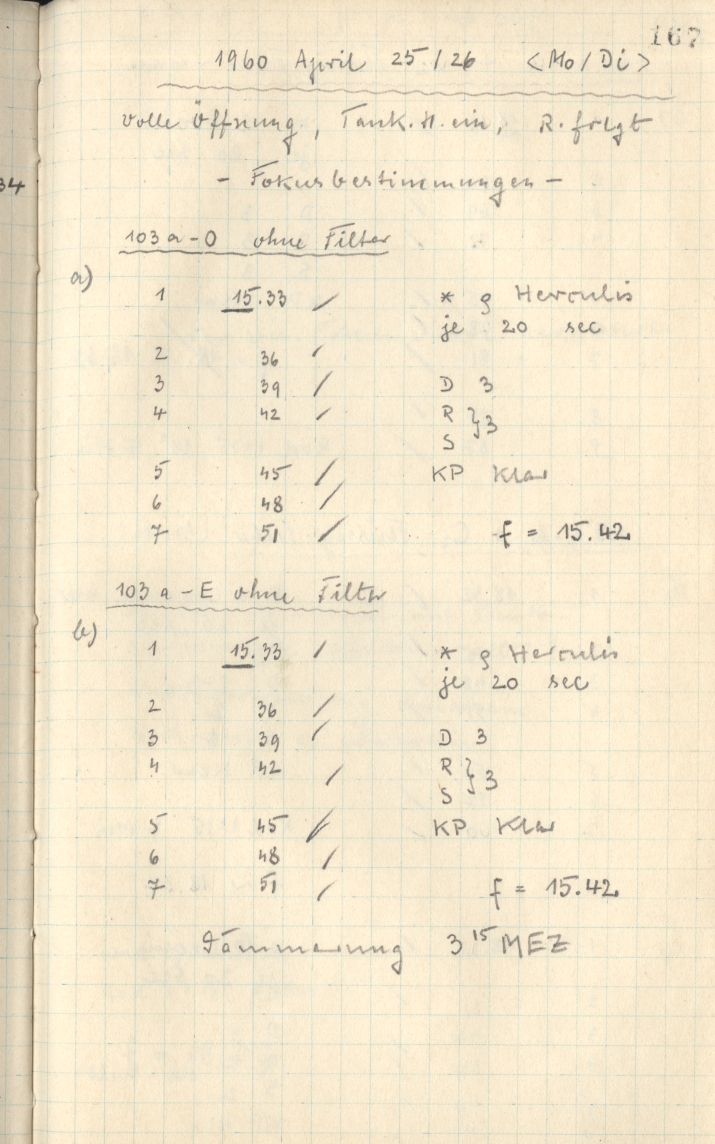 167
1960 April 25/26 <Mo/Di>
volle Öffnung, Tank.H. ein, R. folgt
- Fokusbestimmungen -
34
103 a - O ohne Filter
a)
1 15.33 / * g Herculis
je 20 sec
2 36 /
3 39 / D 3
4 42 / R } 3
S
5 45 / KP Klar
6 48 /
7 51 / f = 15.42
103 a - E ohne Filter
b)
1 15.33 / * g Herculis
je 20 sec
2 36 /
3 39 / D 3
4 42 / R } 3
S
5 45 / KP Klar
6 48 /
7 51 / f = 15.42
Dämmerung 3 15 MEZ